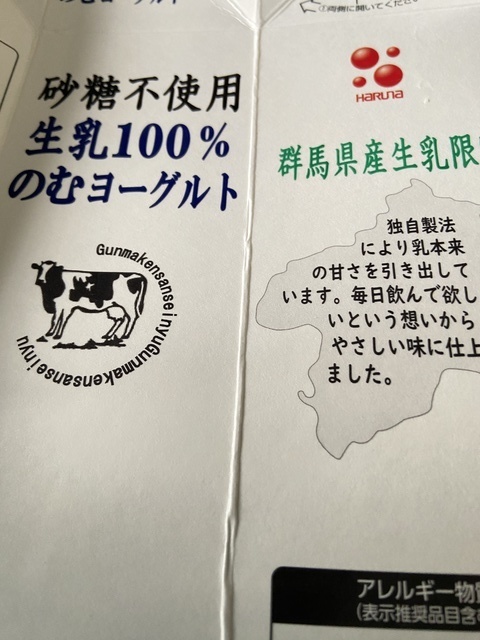 のむヨーグルト
①両側に開いてくださ
砂糖不使用
生乳100%
のむヨーグルト
GunmakensanseinyuGunmakensanseinyu
HARUNA
群馬県産生乳限
独自製法
により乳本来
の甘さを引き出して
います。毎日飲んで欲し
いという想いから
やさしい味に仕上
ました。
アレルギー物質
(表示推奨品目含む